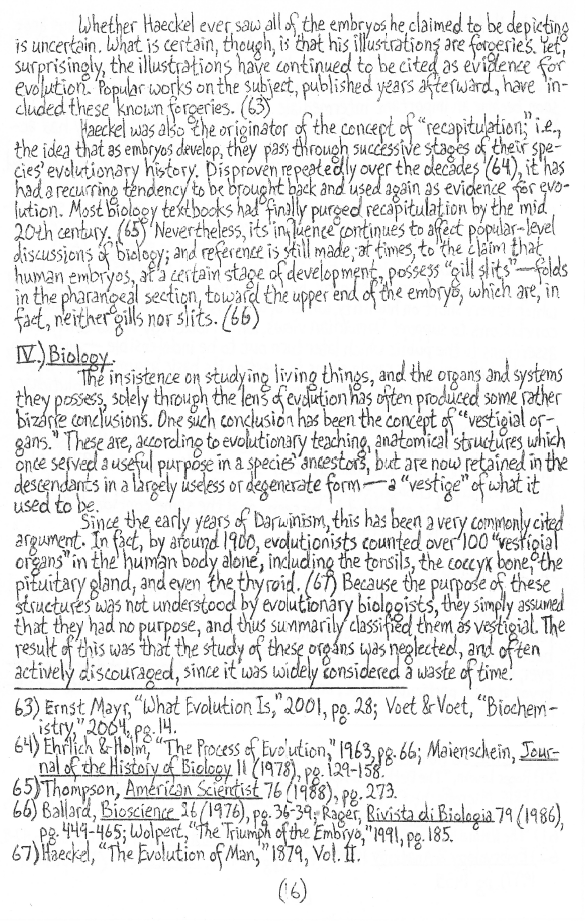 Whether Haeckel ever saw all of the embryos he claimed to be depicting
is uncertain. What is certain, though, is that his illustrations are forgeries. Yet,
surprisingly, the illustrations have continued to be cited as evidence for
evolution. Popular works on the subject, published years afterward, have in-
cluded these known forgeries. (63)
Haeckel was also the originator of the concept of "recapitulation," i.e.,
the idea that as embryos develop, they pass through successive stages of their spe-
cies' evolutionary history. Disproven repeatedly over the decades (64), it has
had a recurring tendency to be brought back and used again as evidence for evo-
lution. Most biology textbooks had finally purged recapitulation by the mid
20th century. (65) Nevertheless, its influence continues to affect popular-level
discussions of biology; and reference is still made, at times, to the claim that
human embryos, at a certain stage of development, possess "gill slits"—folds
in the pharangeal section, toward the upper end of the embryo, which are, in
fact, neither gills nor slits. (66)
IV.) Biology.
The insistence on studying living things, and the organs and systems
they possess, solely through the lens of evolution has often produced some rather
bizarre conclusions. One such conclusion has been the concept of "vestigial or-
gans." These are, according to evolutionary teaching, anatomical structures which
once served a useful purpose in a species' ancestors, but are now retained in the
descendants in a largely useless or degenerate form—a "vestige" of what it
used to be.
Since the early years of Darwinism, this has been a very commonly cited
argument. In fact, by around 1900, evolutionists counted over 100 "vestigial
organs" in the human body alone, including the tonsils, the coccyx bone, the
pituitary gland, and even the thyroid. (67) Because the purpose of these
structures was not understood by evolutionary biologists, they simply assumed
that they had no purpose, and thus summarily classified them as vestigial. The
result of this was that the study of these organs was neglected, and often
actively discouraged, since it was widely considered a waste of time.
63) Ernst Mayr, "What Evolution Is," 2001, pg. 28; Voet & Voet, "Biochem-
istry," 2004, pg. 14.
64) Ehrlich & Holm, "The Process of Evolution," 1963, pg. 66; Maienschein, Jour-
nal of the History of Biology 11 (1978), pg. 129-158.
65) Thompson, American Scientist 76 (1988), pg. 273.
66) Ballard, Bioscience 26 (1976), pg. 36-39; Rager, Rivista di Biologia 79 (1986),
pg. 449-465; Wolpert, "The Triumph of the Embryo," 1991, pg. 185.
67) Haeckel, "The Evolution of Man," 1879, Vol. II.
(16)